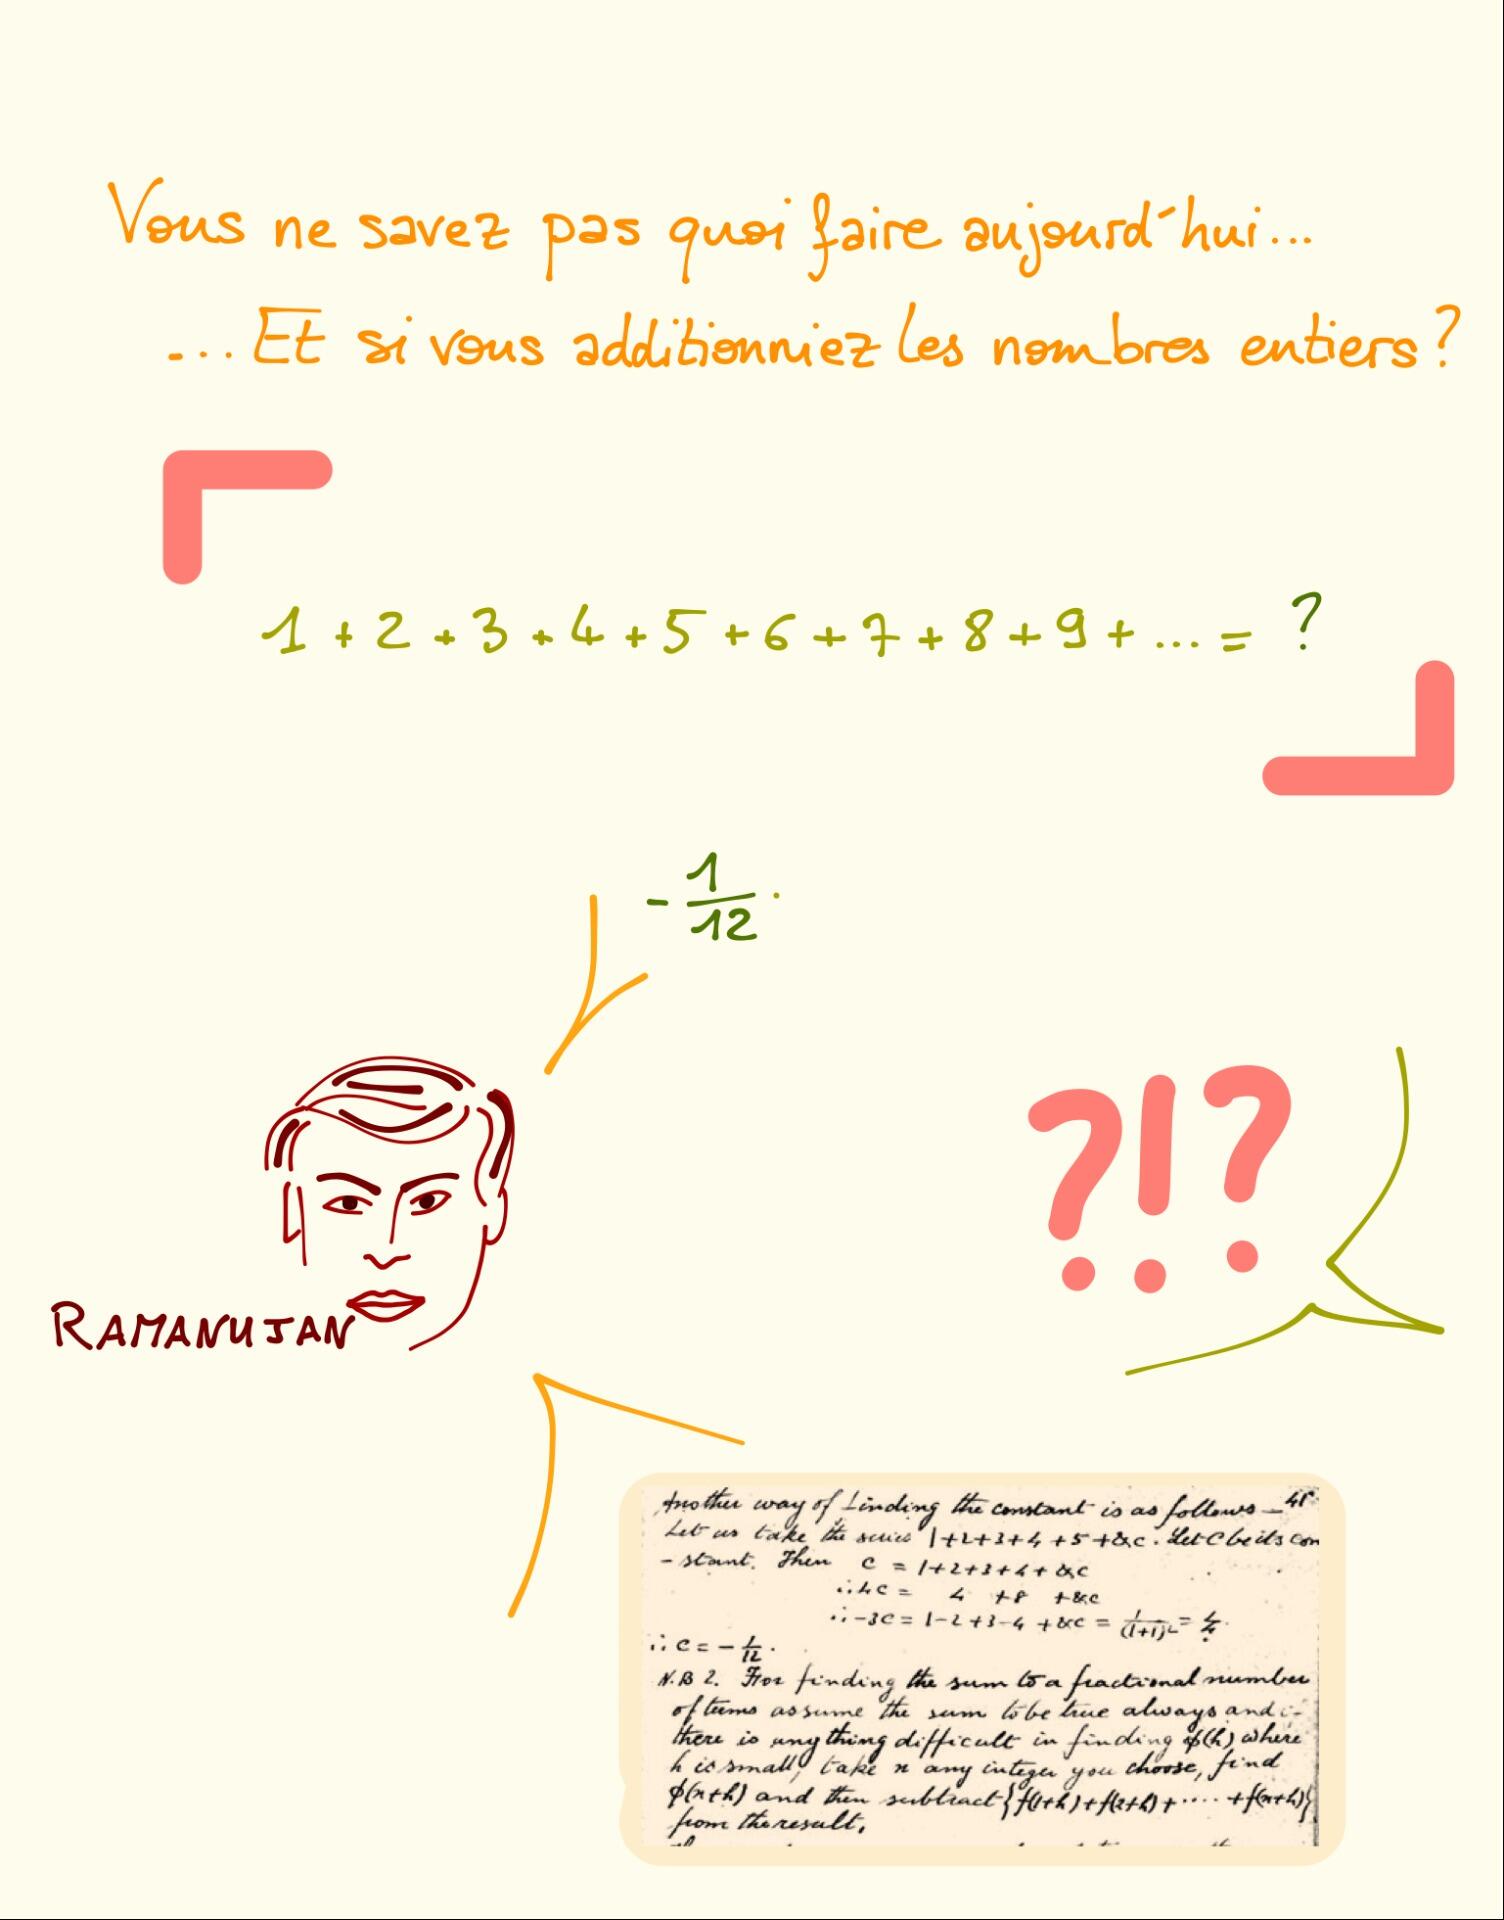 Vous ne savez pas quoi faire aujourd'hui...
...Et si vous additionniez les nombres entiers?
1 + 2 + 3 + 4 + 5 + 6 + 7 + 8 + 9 + ... = ?
- 1/12.
?!?
RAMANUJAN
Another way of finding the constant is as follows — 41
Let us take the series 1+2+3+4+5+&c. Let C be its con
-stant. Then c = 1+2+3+4+&c
∴ 4c = 4 +8 +&c
∴ -3c = 1-2+3-4+&c = 1/(1+1)² = 1/4.
∴ c = -1/12.
N.B 2. For finding the sum to a fractional number
of terms assume the sum to be true always and i-
there is anything difficult in finding φ(h) where
h is small, take n any integer you choose, find
φ(n+h) and then subtract {f(1+h)+f(2+h)+....+f(n+h)}
from the result.